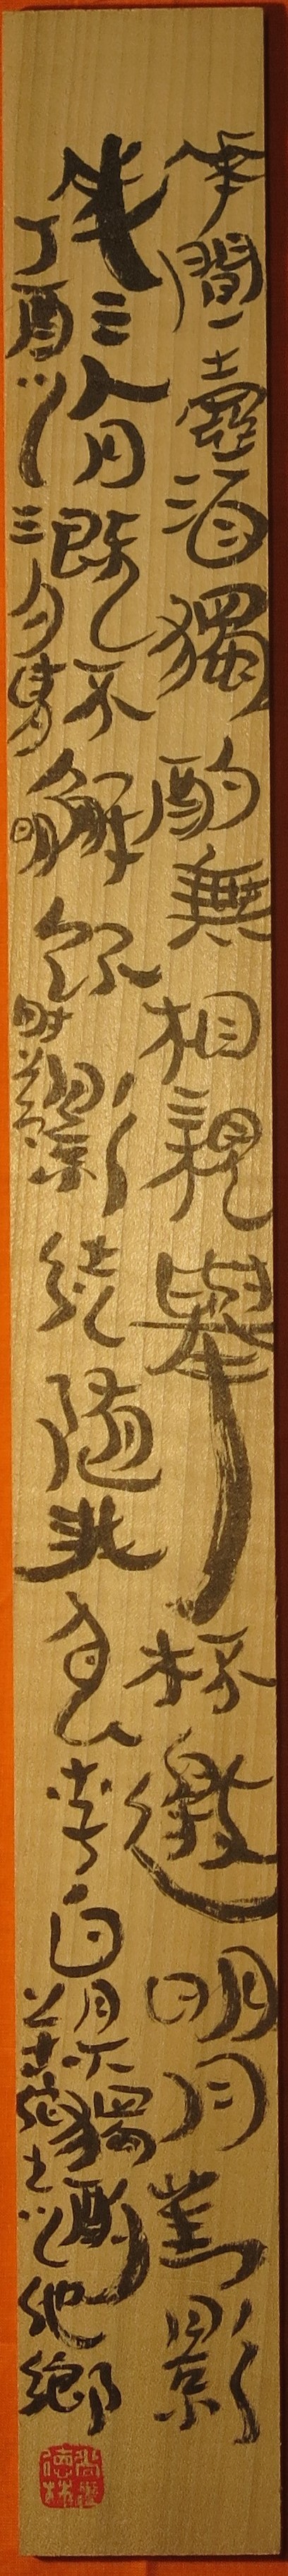 花間一壺酒獨酌無相親舉杯邀明月對影
成三人月既不解飲影徒隨我身李白月下獨酌
丁酉 三月 於他鄉